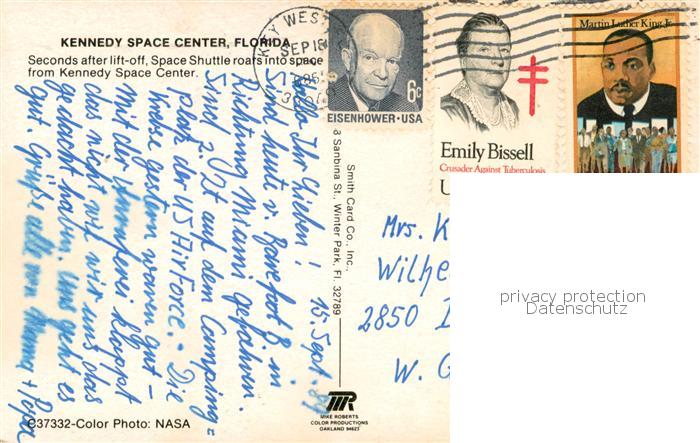 KENNEDY SPACE CENTER, FLORIDA
Seconds after lift-off, Space Shuttle roars into space
from Kennedy Space Center.
KEY WEST
SEP 18
EISENHOWER·USA
6c
Emily Bissell
Crusader Against Tuberculosis
U
Martin Luther King Jr.
15. Sept. 89
Hallo Ihr Lieben!
Sind heute v. Barefoot B in
Richtung Miami gefahren.
Sind z. Zt auf dem Camping=
platz der US AirForce. - Die
Kekse gestern waren gut -
mit der kommt klappt
das nicht wir wir uns das
gedacht haben. Uns geht es
gut. Grüße alle von Mama + Papa
Smith Card Co., Inc.,
Sanbina St., Winter Park, Fl. 32789
Mrs. K
Wilhe
2850
W. G
privacy protection
Datenschutz
MR
MIKE ROBERTS
COLOR PRODUCTIONS
OAKLAND 94623
C37332-Color Photo: NASA